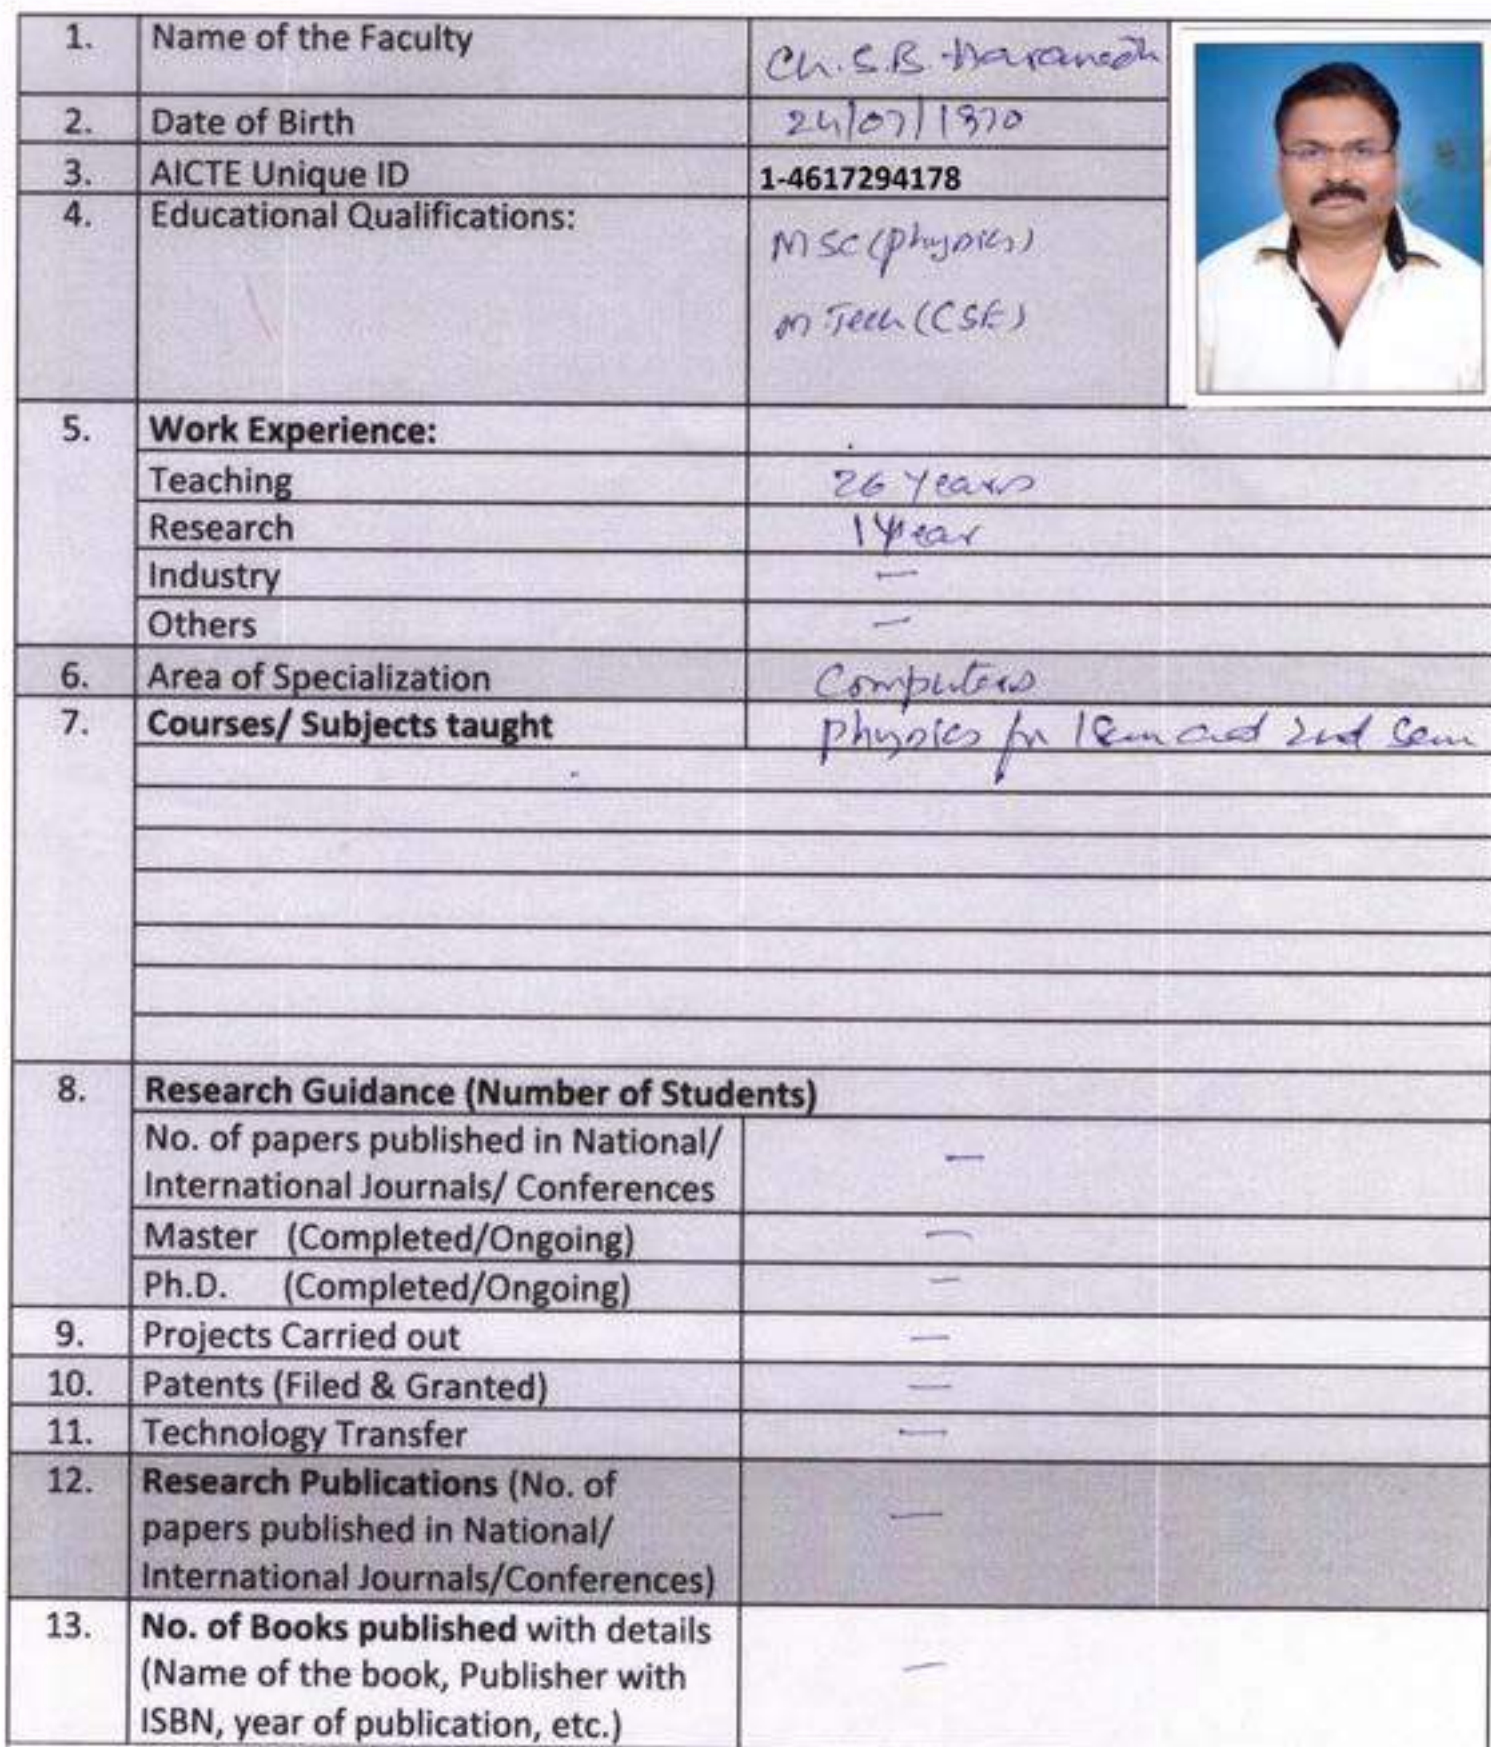 1. Name of the Faculty Ch. S.B.
2. Date of Birth 24/07/1970
3. AICTE Unique ID 1-4617294178
4. Educational Qualifications: MSC (physics)
M Tech (CSE)
5. Work Experience:
Teaching 26 Years
Research 1 Year
Industry —
Others —
6. Area of Specialization Computers
7. Courses/ Subjects taught physics for 1 Sem and 2nd Sem
8. Research Guidance (Number of Students)
No. of papers published in National/ —
International Journals/ Conferences
Master (Completed/Ongoing) —
Ph.D. (Completed/Ongoing) —
9. Projects Carried out —
10. Patents (Filed & Granted) —
11. Technology Transfer —
12. Research Publications (No. of —
papers published in National/
International Journals/Conferences)
13. No. of Books published with details
(Name of the book, Publisher with —
ISBN, year of publication, etc.)